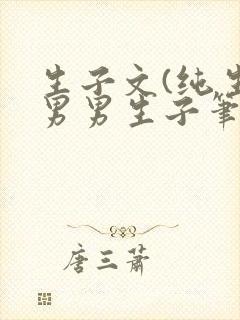 生子文(纯生
男男生子筆
唐三萧